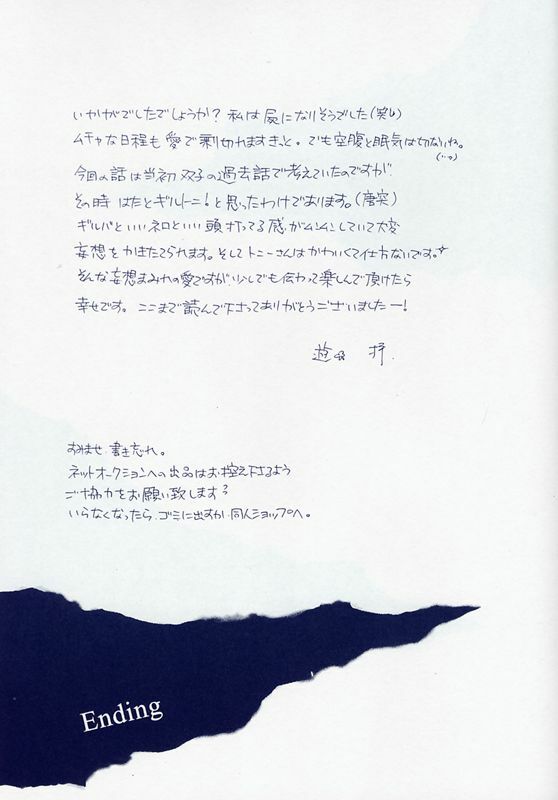 いかがでしたでしょうか? 私は屍になりそうでした(笑)
ムチャな日程も愛で乗り切れますきっと。でも空腹と眠気は切ないね。
今回の話は当初双子の過去話で考えていたのですが
その時はたとギルトニ!と思ったわけであります。(唐突)
ギルバといいネロといい頭打ってる感がムンムンしていて大変
妄想をかきたてられます。そしてトニーさんはかわいくて仕方ないです。
そんな妄想まみれの愛ですが、少しでも伝わって楽しんで頂けたら
幸せです。ここまで読んで下さってありがとうございましたー!
すみませ、書き忘れ。
ネットオークションへの出品はお控え下さるよう
ご協力をお願い致します
いらなくなったら、ゴミに出すか、同人ショップへ。
Ending